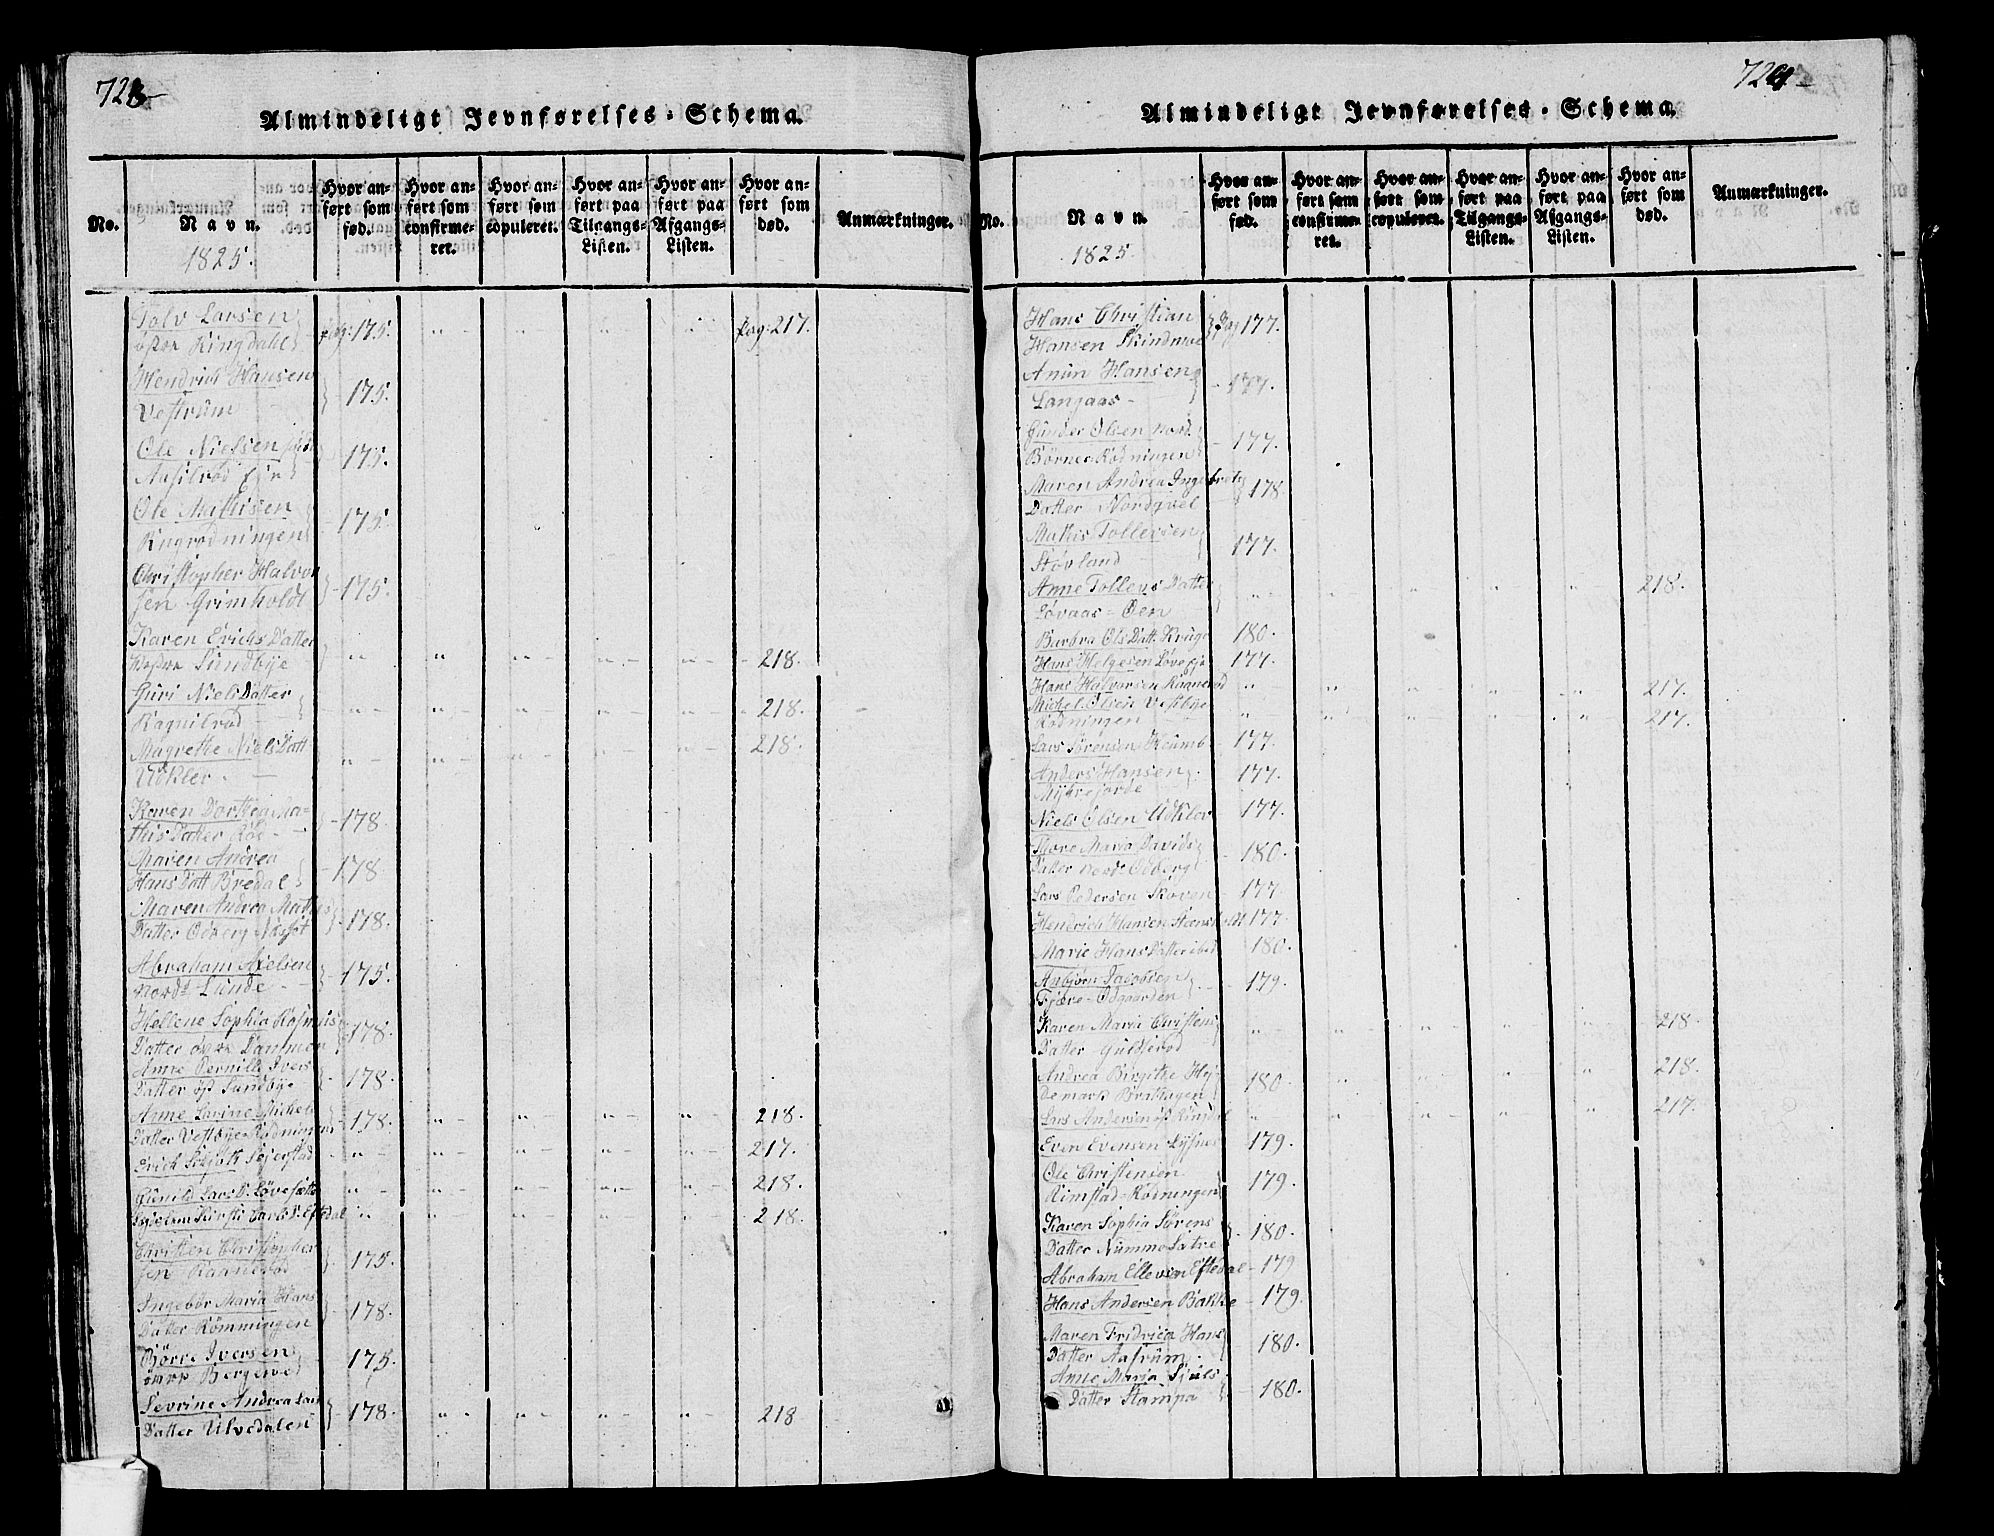 728
Almindeligt Jevnførelses-Schema.
No.
Navn.
1825.
Hvor anført som fød.
Hvor anført som confirmeret.
Hvor anført som copuleret.
Hvor anført paa Tilgangs-Listen.
Hvor anført paa Afgangs-Listen.
Hvor anført som død.
Anmærkninger.
Tolv Larsen
østre Ringdahl pag: 175. " " " " pag: 217.
Hendrich Hansen
Vestrum 175.
Ole Nielsen
Aasilrød Eje 175.
Ole Mathisen
Rugrødningen 175.
Christopher Halvor
sen Grimholdt 175.
Karen Erichs Datter
Sundbye " " " " " 218.
Guri Niels Datter
Ragnilrød " " " " " 218.
Magrethe Niels Datt
Udkler " " " " " 218.
Karen Dorthea Ma-
this Datter Røe 178.
Maren Andrea
Hans Datt Bredal 178
Maren Andrea Mathis
Datter Odberg 178.
Abraham Axelsen
Nord Lunde 175.
Hellene Sophia Rasmus
Datter øvre Dammen 178.
Anne Pernille Ivers
Datter øst Sundbye 178.
Anne Larine Michels
Datter Vestbye Rødningen 178. " " " " 218.
Erich Seierstad " " " " " 217.
Gunild Lars D. " " " " " 218.
Kirsti Carls D. Eftedal " " " " " 218.
Christen Christopher
sen Raanerød 175.
Ingebør Maria Hans
Datter Rømmingen 178.
Børre Iversen
øvre Berg 175.
Sevrine Andrea Lars
Datter Ulvedalen 178. " " " " 218
729
Almindeligt Jevnførelses-Schema.
No.
Navn.
1825.
Hvor anført som fød.
Hvor anført som confirmeret.
Hvor anført som copuleret.
Hvor anført paa Tilgangs-Listen.
Hvor anført paa Afgangs-Listen.
Hvor anført som død.
Anmærkninger.
Hans Christian
Hansen Skindmoe Pag 177.
Anun Hansen
Langaas 177.
Gunder Olsen nord
Børnes Rødningen 177.
Maren Andrea Ingebrets
Datter Nordqvel 178
Mathis Tollersen
Støvland 177.
Anne Tollevs Datter
Løvaas-Øen " " " " " 218.
Barbra Ols Datt. Kruge 180.
Hans Helgesen Løve Eje 177.
Hans Halvorsen Raanerød " " " " " 217.
Michel Olsen Vestbye
Rødningen " " " " " 217.
Lars Sørensen 177.
Anders Hansen
Myhrejorde 177.
Niels Olsen Udkler 177.
Thore Maria Davids
Datter Nord Odberg 180.
Lars Pedersen Skoven 177
Hendrich Hansen Steensholt 177
Marie Hans Datter ibid 180.
Anbjørn Jacobsen
Fjære-Odgaarden 179.
Karen Maria Christens
Datter Guldserød " " " " " 218.
Andrea Birgithe Hej-
demark Brathagen 180. " " " " 218.
Lars Andersen øst Ringdal " " " " " 217.
Even Evensen 179.
Ole Christensen
Rimstad-Rødningen 179.
Karen Sophia Sørens
Datter Numme Sætre 180.
Abraham Ellevsen Eftedal 179
Hans Andersen Bakke 179.
Maren Fridrica Hans
Datter Aasrum 180.
Anne Maria Sjuls
Datter Stampa 180.